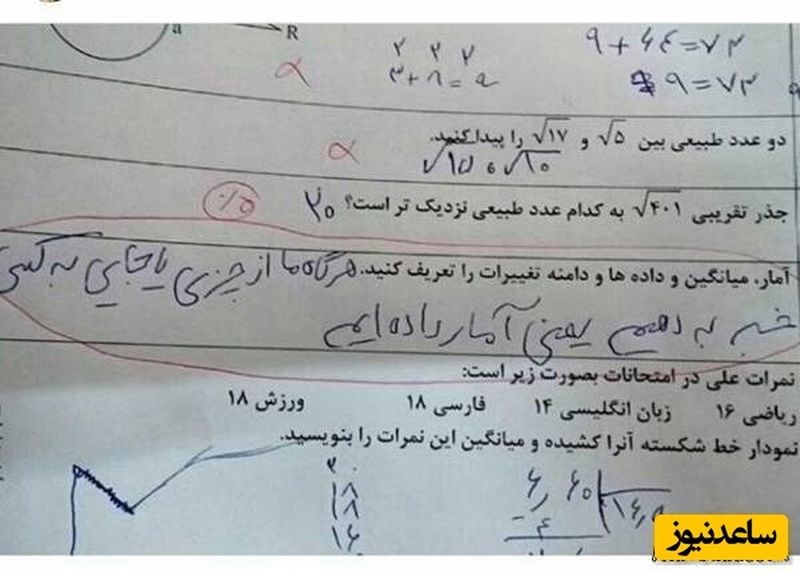 a
R
۲ ۲ ۲
۹ + ۶۴ = ۷۳
۳ + ۸ = ۹
۹ = ۷۳
دو عدد طبیعی بین √۵ و √۱۷ را پیدا کنید.
√۱۵ و √۱۰
جذر تقریبی √۴۰۱ به کدام عدد طبیعی نزدیک تر است؟ ۲۰
آمار، میانگین و داده ها و دامنه تغییرات را تعریف کنید. هرگاه ما از چیزی یا جایی به کسی
خبر به دهیم یعنی آمار داده ایم
نمرات علی در امتحانات بصورت زیر است:
ریاضی ۱۶ زبان انگلیسی ۱۴ فارسی ۱۸ ورزش ۱۸
نمودار خط شکسته آنرا کشیده و میانگین این نمرات را بنویسید.
۲۰
۱۸
۱۸
۱۶
ساعدنیوز